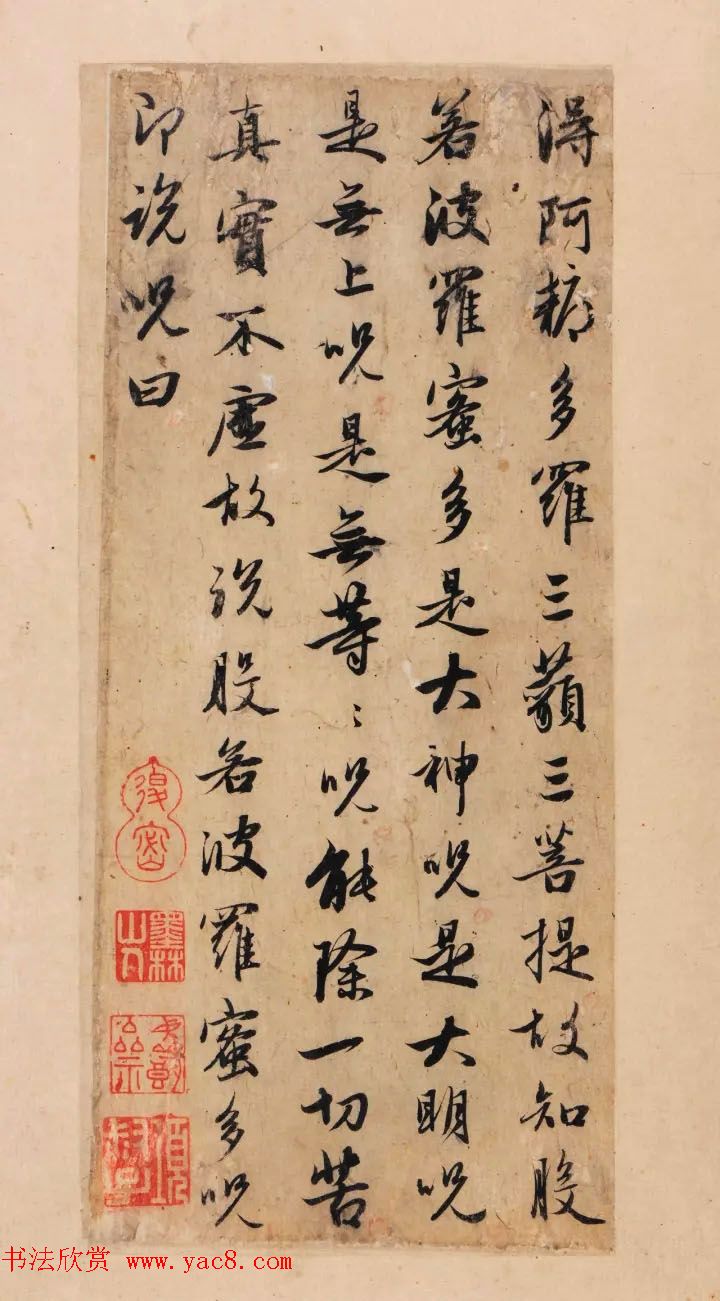 得阿耨多羅三藐三菩提故知般
若波羅蜜多是大神呪是大明呪
是無上呪是無等〻呪能除一切苦
真實不虛故說般若波羅蜜多呪
即說呪曰
墨林山人
书法欣赏 www.yac8.com